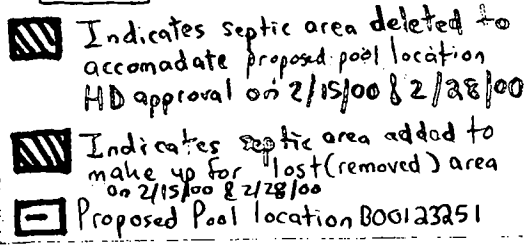 Indicates septic area deleted to
accomadate proposed pool location
HD approval on 2/15/00 & 2/28/00
Indicates septic area added to
make up for lost (removed) area
on 2/15/00 & 2/28/00
Proposed Pool location B00123251